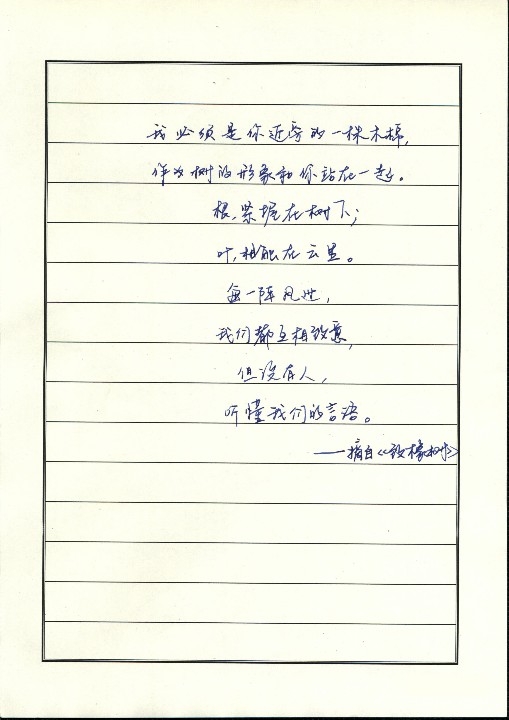 我必须是你近旁的一株木棉,
作为树的形象和你站在一起。
根,紧握在树下;
叶,相触在云里。
每一阵风过,
我们都互相致意,
但没有人,
听懂我们的言语。
——摘自《致橡树》